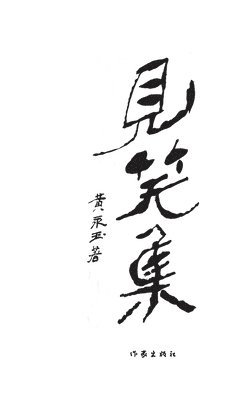 見笑集
黃永玉著
作家出版社